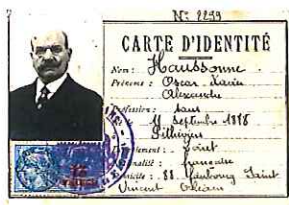 N: 2299
CARTE D'IDENTITÉ
Nom: Haussonne
Prénoms: Oscar Xavier
Alexandre
Profession: sans
11 Septembre 1878
Pithiviers
Département: Loiret
Nationalité: française
Domicile: 88. Faubourg Saint
Vincent Orléans